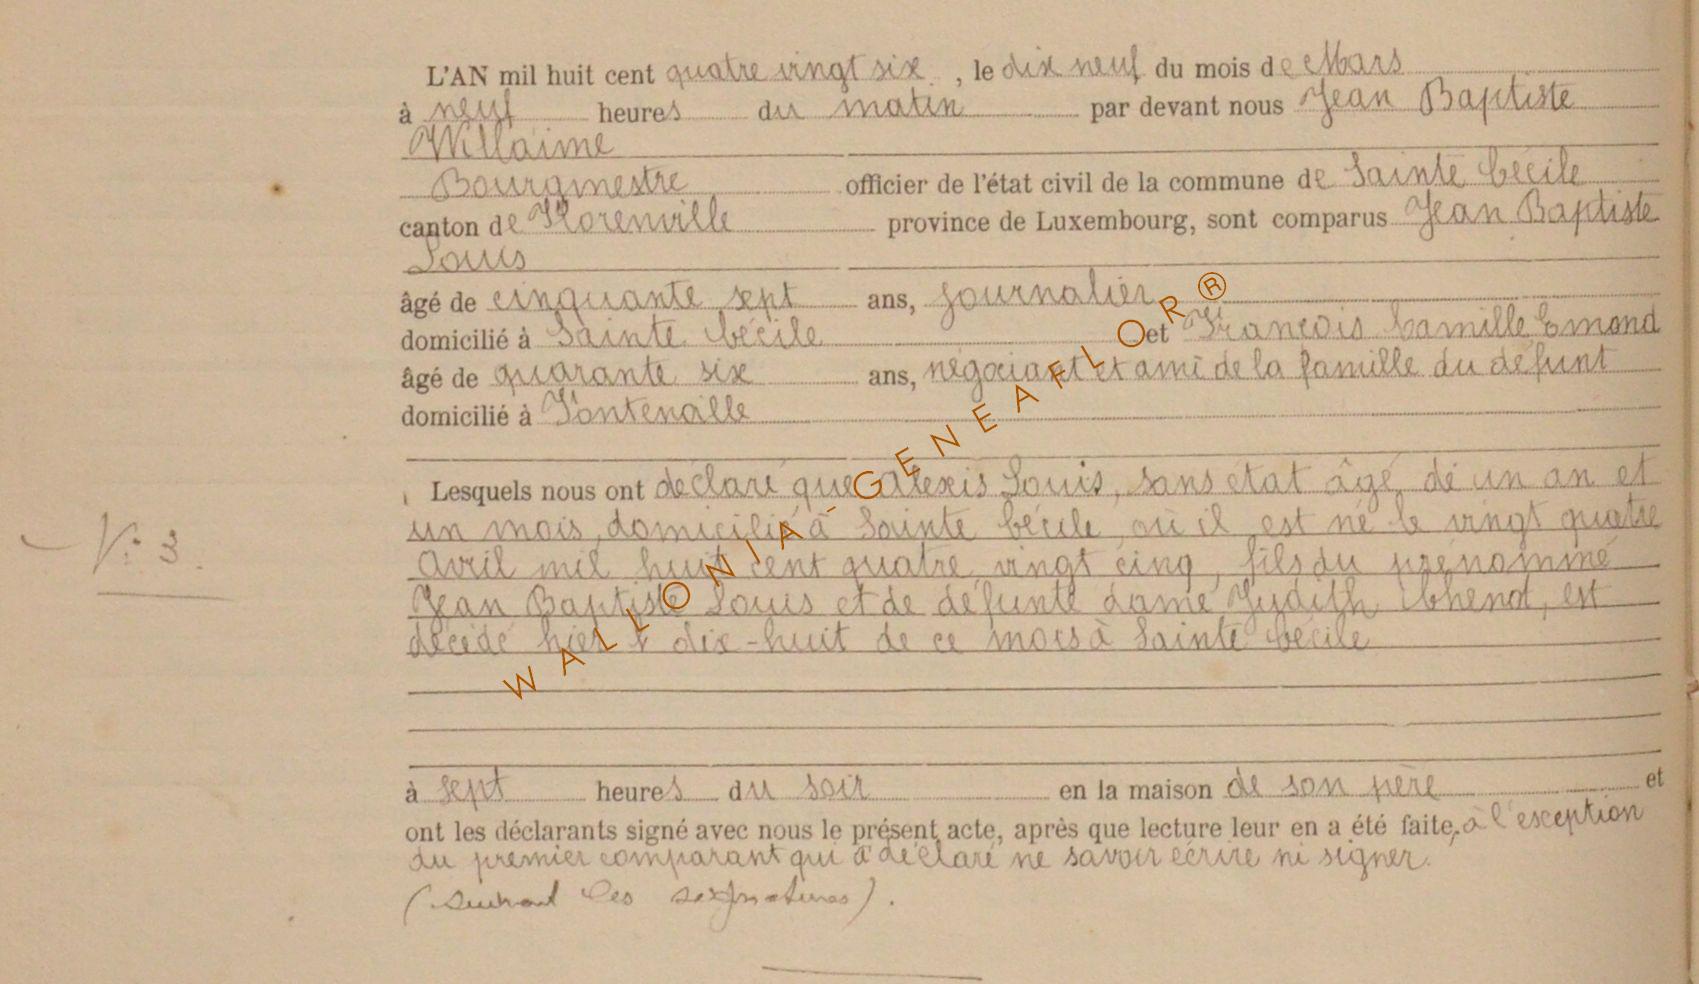 L'AN mil huit cent quatre vingt six, le dix neuf du mois de Mars
à neuf heures du matin par devant nous Jean Baptiste
Willaime
Bourgmestre officier de l'état civil de la commune de Sainte Cécile
canton de Florenville province de Luxembourg, sont comparus Jean Baptiste
Louis
âgé de cinquante sept ans, journalier
domicilié à Sainte Cécile et François Camille Emond
âgé de quarante six ans, négociant et ami de la famille du défunt
domicilié à Fontenoille
Lesquels nous ont déclaré que Alexis Louis, sans état âgé de un an et
N° 3.
un mois, domicilié à Sainte Cécile, où il est né le vingt quatre
Avril mil huit cent quatre vingt cinq, fils du prénommé
Jean Baptiste Louis et de défunte dame Judith, est
décédé hier dix-huit de ce mois à Sainte Cécile
à sept heures du soir en la maison de son père et
ont les déclarants signé avec nous le présent acte, après que lecture leur en a été faite, à l'exception
du premier comparant qui a déclaré ne savoir écrire ni signer.
(Suivent les signatures).
WALLONIA-GENEAFLOR®